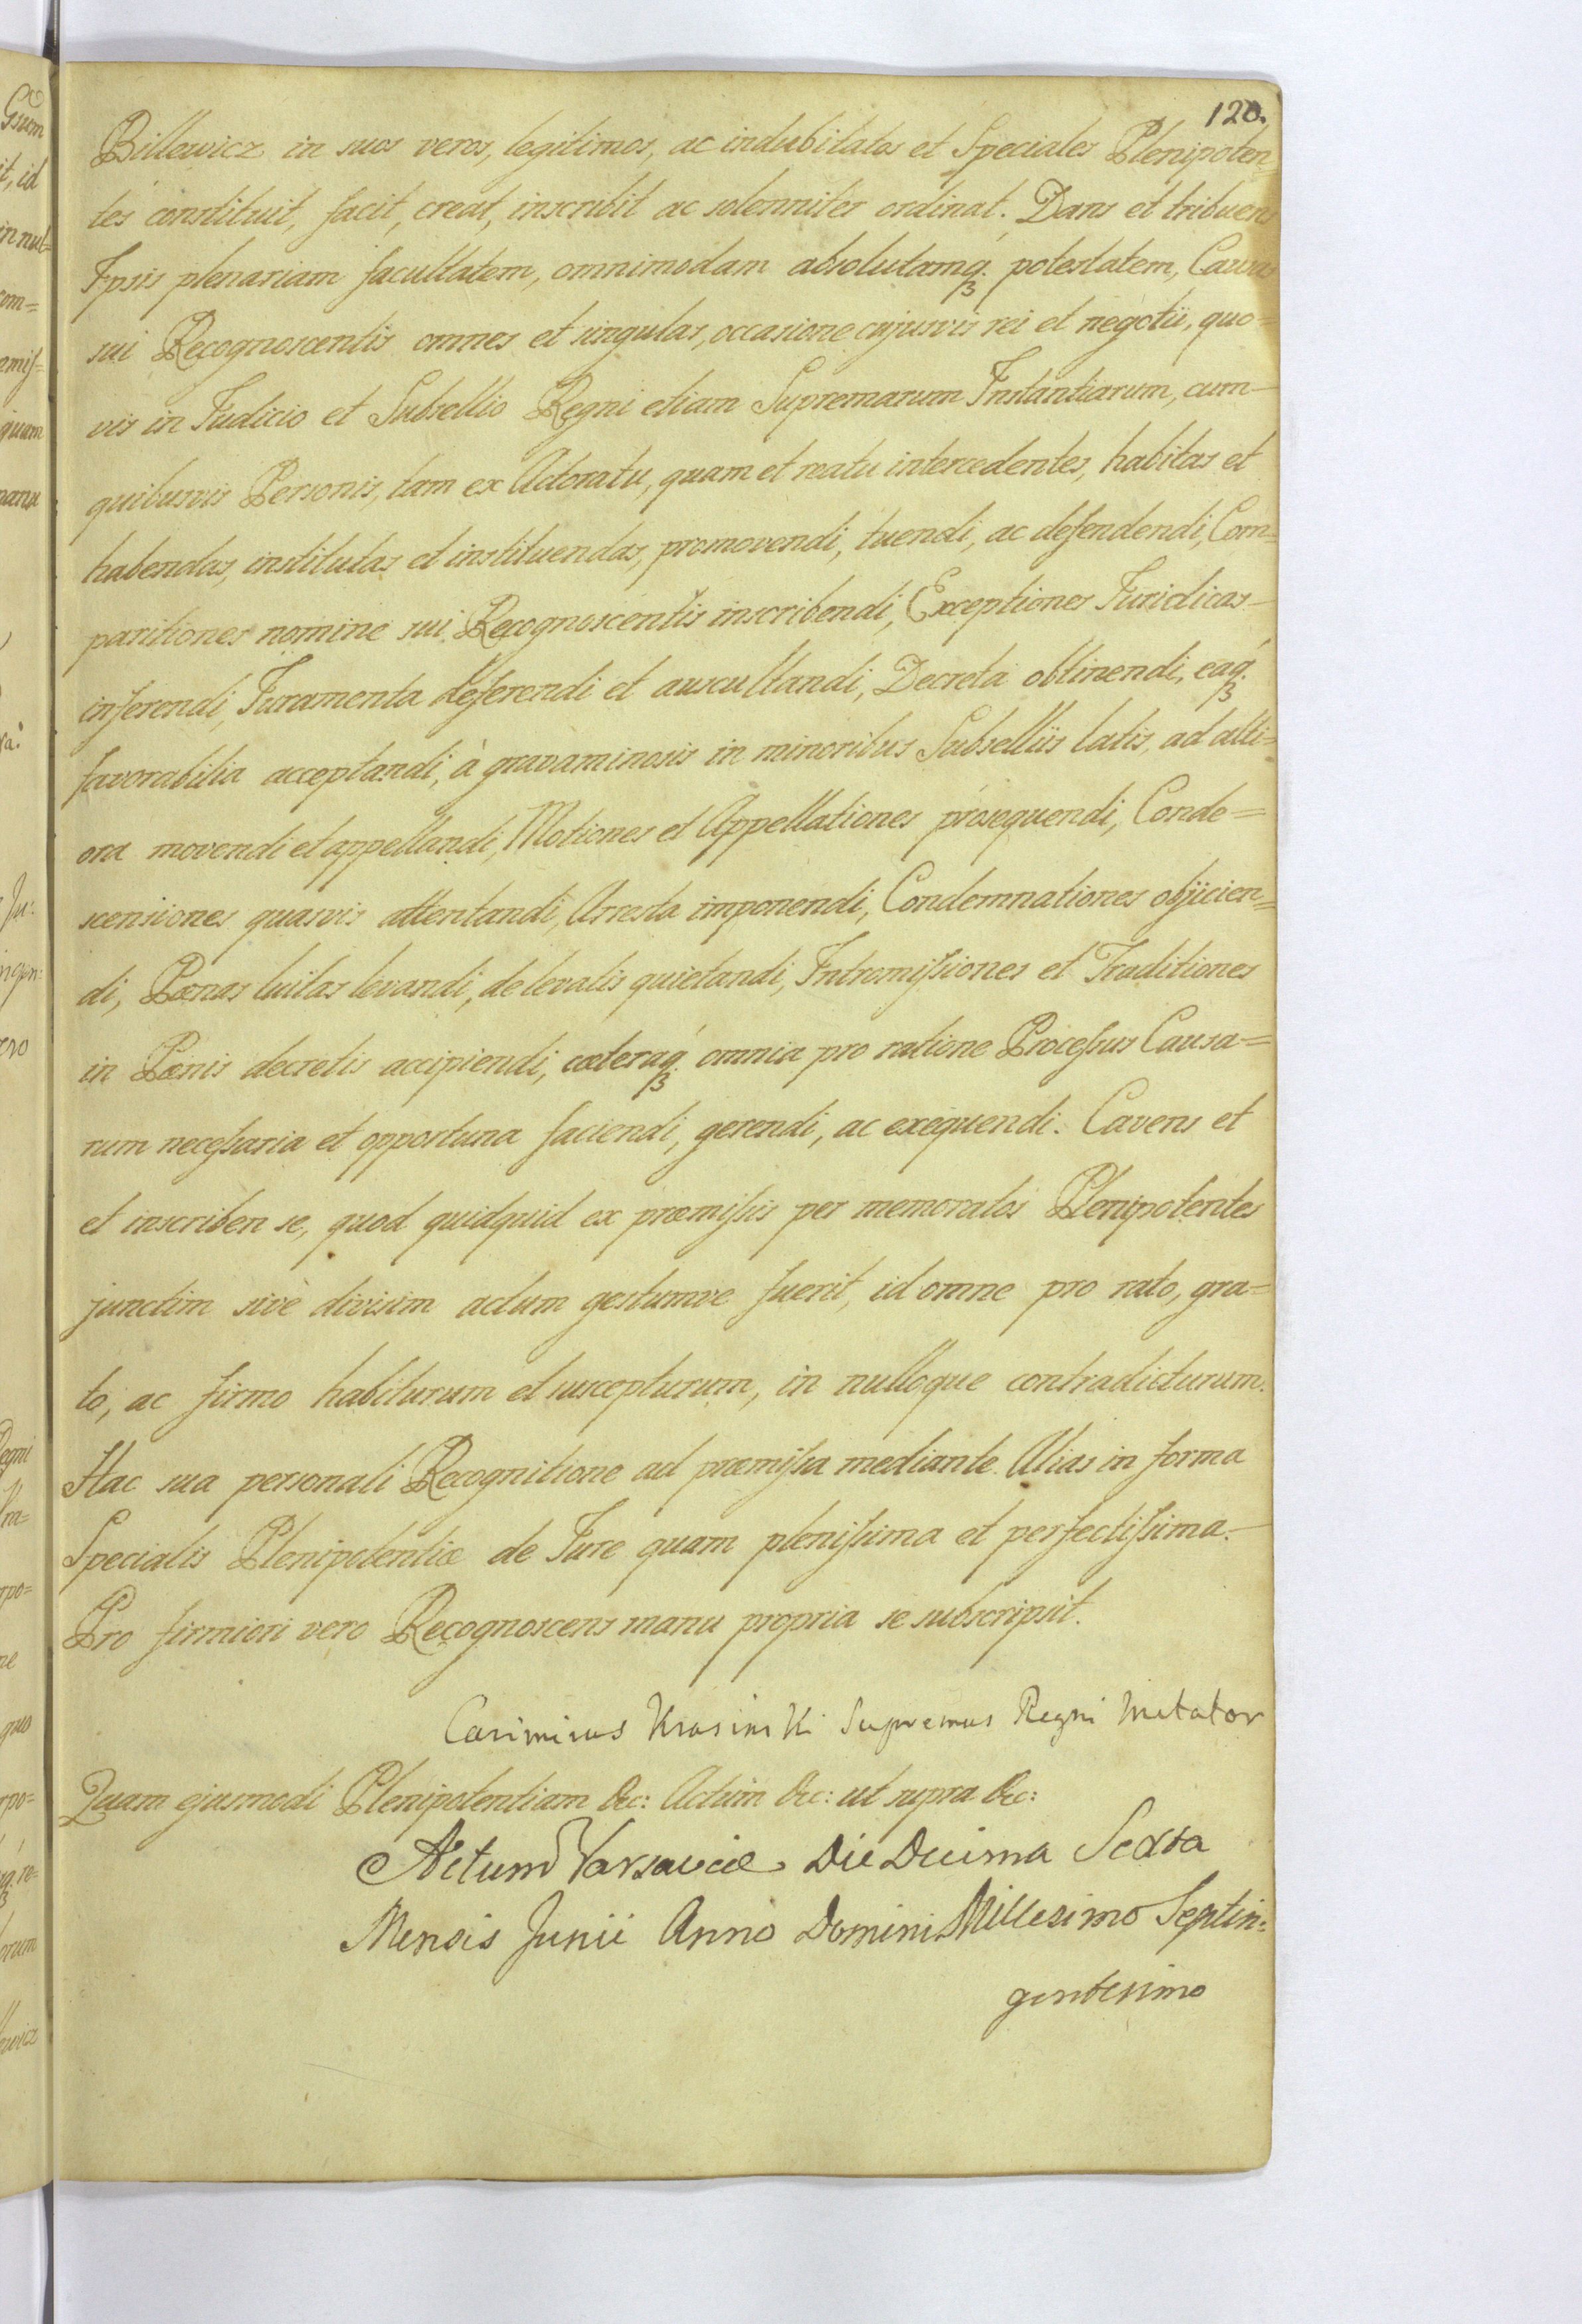 120.
Billewicz in suos veros, legitimos, ac indubitatos et Speciales Plenipoten
tes constituit, facit, creat, inscribit ac solenniter ordinat. Dans et tribuens
Ipsis plenariam facultatem, omnimodam absolutamq́ʒ potestatem, Causas
sui Recognoscentis omnes et singulas, occasione cujusvis rei et negotii, quo=
vis in Judicio et Subsellio Regni etiam Supremarum Instantiarum, cum-
quibusvis Personis, tam ex Actoratu, quam et reatu intercedentes, habitas et
habendas, institutas et instituendas, promovendi, tuendi, ac defendendi, Com=
paritiones nomine sui Recognoscentis inscribendi, Exceptiones Juridicas-
inferendi, Juramenta deferendi et auscultandi, Decreta obtinendi, eaq́ʒ
favorabilia acceptandi, à gravaminosis in minoribus Subselliis latis, ad alti=
ora movendi et appellandi, Motiones et Appellationes prosequendi, Conde=
scensiones quasvis attentandi, Arresta imponendi, Condemnationes objicien=
di, Pœnas luitas levandi, de levatis quietandi, Intromissiones et Traditiones
in Pœnis decretis accipiendi, cæteraq́ʒ omnia pro ratione Processus Causa=
rum necessaria et opportuna faciendi, gerendi, ac exequendi. Cavens et
et inscriben se, quod quidquid ex præmissis per memoratos Plenipotentes
junctim sivè divisim actum gestumve fuerit, id omne pro rato, gra=
to, ac firmo habiturum et suscepturum, in nulloque contradicturum.
Hac sua personali Recognitione ad præmissa mediante. Alias in forma
Specialis Plenipotentiæ de Jure quam plenissima et perfectissima.-
Pro firmiori vero Recognoscens manu propria se subscripsit.
Casimirus Krasinski Supremus Regni Metator
Quam ejusmodi Plenipotentiam &c: Actum &c: ut supra &c:
Actum Varsaviæ Die Decima Sexta
Mensis Junii Anno Domini Millesimo Septin=
gentesimo
Gsum
it, id
in nul=
om=
quam
manu
ra:
Ju:
ero
Regni
rpo=
ne
quo
rpo=
re=
orum
ewicz